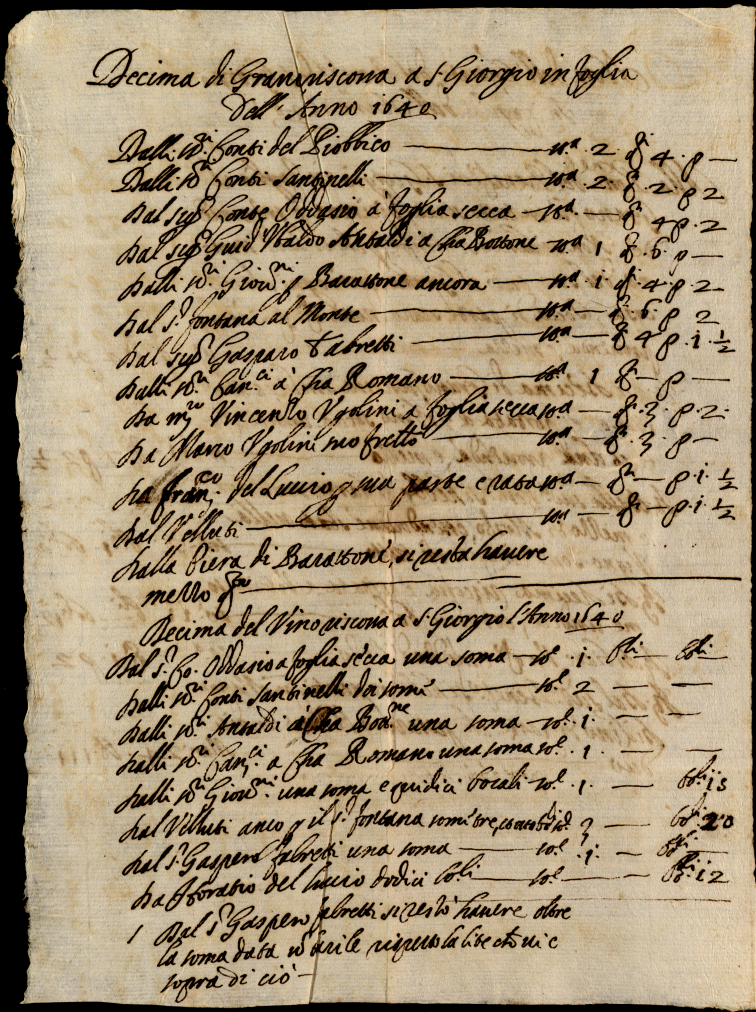 Decima di Grano riscossa a S. Giorgio in foglia
Dell'Anno 1640
Dalli SS.ri Conti del Piobbico — s.a 2 q. 4 p —
Dalli SS.ri Conti Santinelli — s.a 2 q. 2 p 2
Dal sig.r Conte Oddasio a foglia secca — s.a — q. 4 p. 2
Dal sig.r Guid'Ubaldo Antaldi a Cha Bottone s.a 1 q. 6 p —
Dalli SS.ri Giov.ni p Barattone ancora — s.a 1 q. 4 p 2
Dal S.r fontana al Monte — s.a — q. 6 p 2
Dal sig.r Gasparo Fabretti — s.a — q 4 p. 1. ½
Dalli SS.ri a Cha Romano — s.a 1 q — p —
Da m.ro Vincenzo Vgolini a foglia secca s.a — q. 3 p. 2
Da Marco Vgolini suo — s.a — q. 3 p —
Da fran.co del Luccio p sua parte e rata s.a — q — p. 1. ½
Dal Velluti — s.a — q — p. 1. ½
Dalla di Barattone, si resta havere
mezzo q.ro
Decima del Vino riscossa a S. Giorgio l'Anno 1640
Dal S.r Co. Oddasio a foglia secca una soma — s.e 1. b.li — b.li —
Dalli SS.ri Conti Santinelli doi some — s.e 2 — —
Dalli SS.ri Antaldi a Cha Bot.ne una soma — s.e 1. — —
Dalli SS.ri a Cha Romano una soma s.e 1 — —
Dalli SS.ri Giov.ni una soma e quidici bocali — s.e 1. — b.li 15
Dal Velluti anco p il S.r fontana some tre, s.e 3 — b.li 20
Dal S.r Gaspero fabretti una soma — s.e 1. — b.li —
Da Horatio del luccio dodici b.li — s.e — — b.li 12
Dal S.r Gaspero fabretti si restò havere oltre
la soma data rispetto la lite che vi è
sopra di ciò —